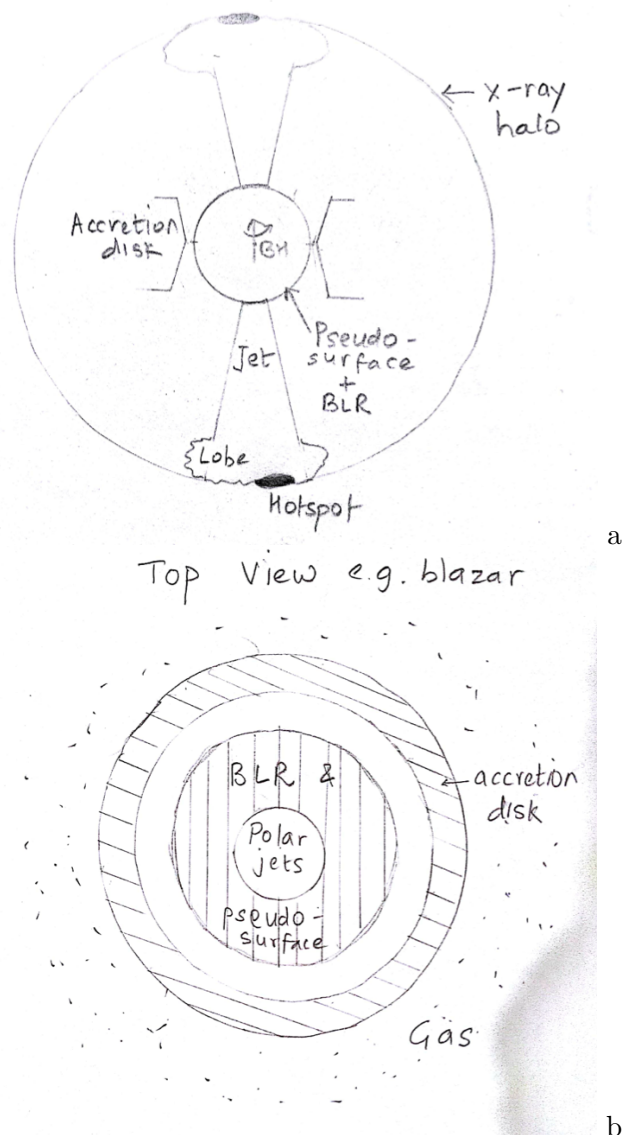 x-ray
halo
Accretion
disk
BH
Pseudo-
surface
+
BLR
Jet
Lobe
Hotspot
a
Top View e.g. blazar
BLR &
Polar
jets
pseudo-
surface
accretion
disk
Gas
b